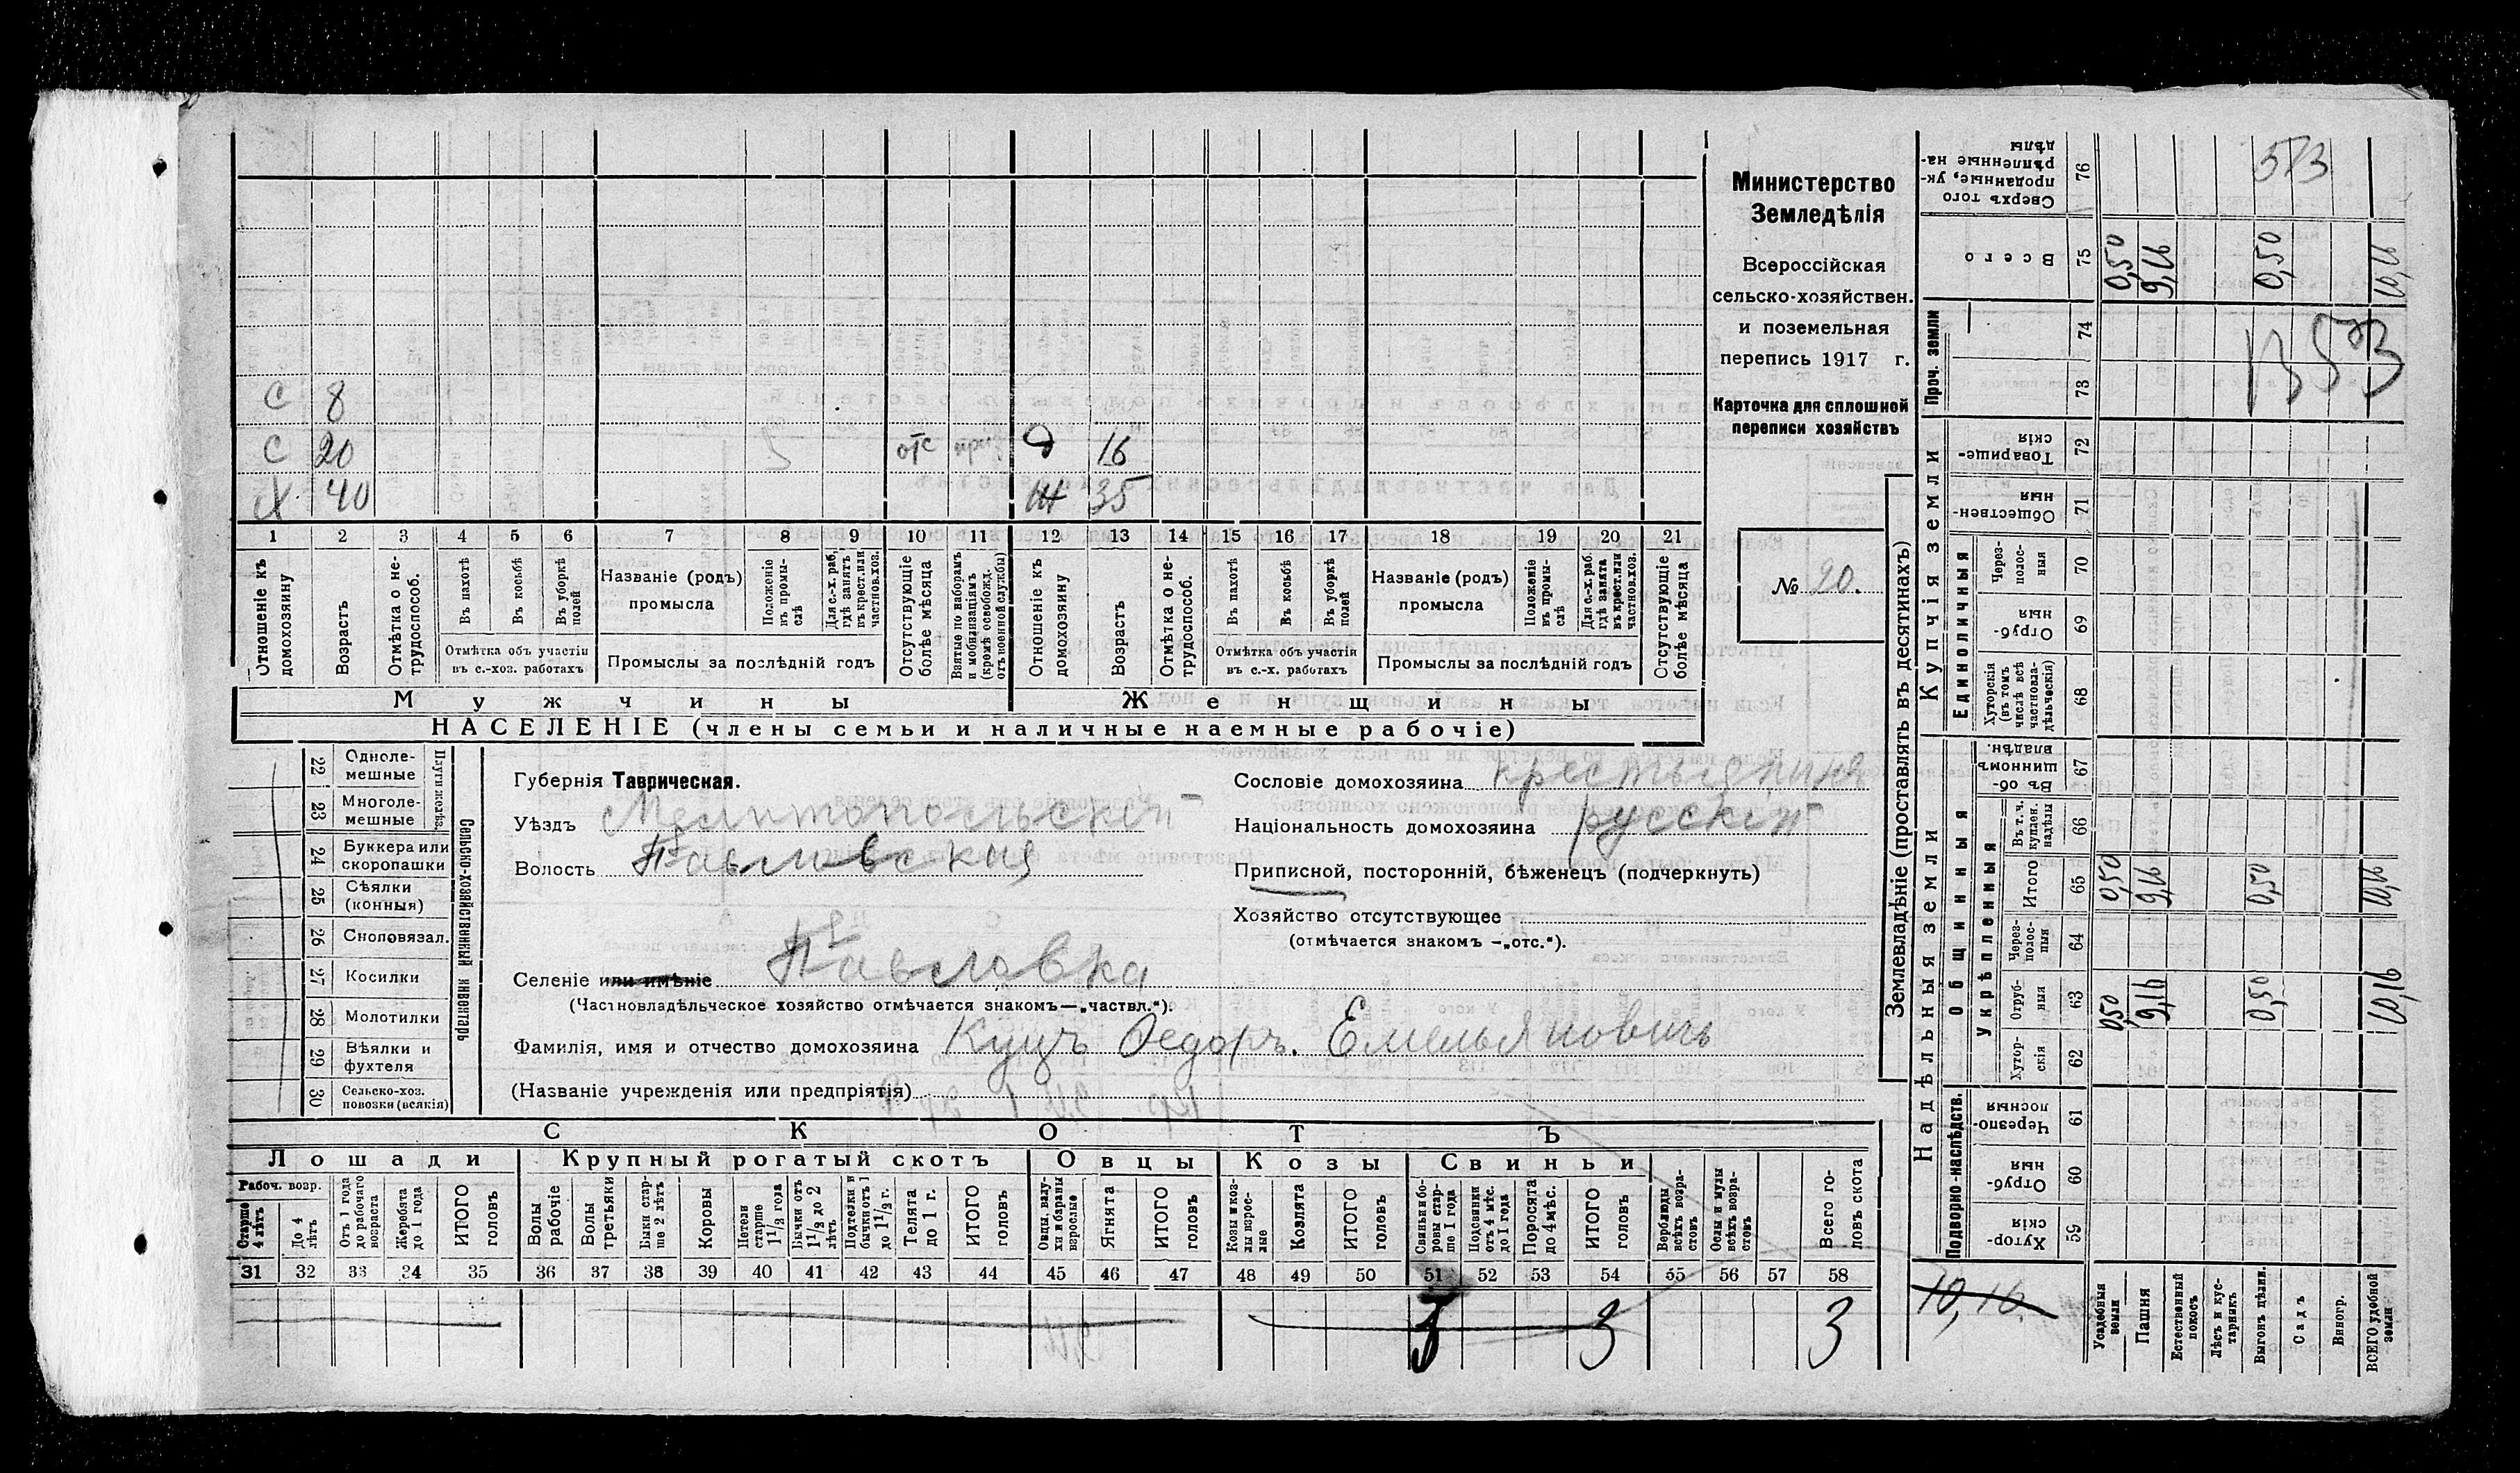 Министерство
Земледѣлія
Всероссійская
сельско-хозяйствен.
и поземельная
перепись 1917 г.
Карточка для сплошной
переписи хозяйствъ
№ 20.
С 8
С 20 отс 16
Х 40 35
1 2 3 4 5 6 7 8 9 10 11 12 13 14 15 16 17 18 19 20 21
Отношеніе къ домохозяину
Возрастъ
Отмѣтка о не-трудоспособ.
Въ пахотѣ
Въ косьбѣ
Въ уборкѣ полей
Отмѣтка объ участіи
въ с.-хоз. работахъ
Названіе (родъ)
промысла
Положеніе въ промы-слѣ
Для с.-х. раб., гдѣ занятъ въ крест. или частнов. хоз.
Промыслы за послѣдній годъ
Отсутствующіе болѣе мѣсяца
Взятые по наборамъ и мобилизаціямъ (кромѣ освобожд. отъ военной службы)
Отношеніе къ домохозяину
Возрастъ
Отмѣтка о не-трудоспособ.
Въ пахотѣ
Въ косьбѣ
Въ уборкѣ полей
Отмѣтка объ участіи
въ с.-х. работахъ
Названіе (родъ)
промысла
Положеніе въ промы-слѣ
Для с.-х. раб. гдѣ занята въ крест. или частнов. хоз.
Промыслы за послѣдній годъ
Отсутствующіе болѣе мѣсяца
Мужчины Женщины
НАСЕЛЕНІЕ (члены семьи и наличные наемные рабочіе)
22 Одноле-мешные
23 Многоле-мешные
Плуги желѣз.
24 Буккера или скоропашки
25 Сѣялки (конныя)
26 Сноповязал.
27 Косилки
28 Молотилки
29 Вѣялки и фухтеля
30 Сельско-хоз. повозки (всякія)
Сельско-хозяйственный инвентарь
Губернія Таврическая.
Уѣздъ Мелитопольскій
Волость Павловская
Селеніе или имѣніе Павловка
(Частновладѣльческое хозяйство отмѣчается знакомъ—„частвл.“).
Фамилія, имя и отчество домохозяина Куцъ Федоръ. Емельяновичъ
(Названіе учрежденія или предпріятія)
Сословіе домохозяина
Національность домохозяина русскій
Приписной, посторонній, бѣженецъ (подчеркнуть)
Хозяйство отсутствующее
(отмѣчается знакомъ —„отс.“).
СКОТЪ
Лошади Крупный рогатый скотъ Овцы Козы Свиньи
Рабоч. возр.
Старше 4 лѣтъ
До 4 лѣтъ
Отъ 1 года до рабочаго возраста
Жеребята до 1 года
ИТОГО головъ
Волы рабочіе
Волы третьяки
Быки стар-ше 2 лѣтъ
Коровы
Нетели старше 1 1/2 года
Бычки отъ 1 1/2 до 2 лѣтъ
Подтелки и бычки отъ 1 до 1 1/2 г.
Телята до 1 г.
ИТОГО головъ
Овцы, валу-хи и бараны взрослые
Ягнята
ИТОГО головъ
Козы и коз-лы взрос-лые
Козлята
ИТОГО головъ
Свиньи и бо-ровы стар-ше 1 года
Подсвинки отъ 4 мѣс. до 1 года
Поросята до 4 мѣс.
ИТОГО головъ
Верблюды всѣхъ возра-стовъ
Ослы и мулы всѣхъ возра-стовъ
Всего го-ловъ скота
31 32 33 34 35 36 37 38 39 40 41 42 43 44 45 46 47 48 49 50 51 52 53 54 55 56 57 58
3 3 3
Землевладѣніе (проставлять въ десятинахъ)
Надѣльныя земли Купчія земли Проч. земли
Подворно-наслѣдств.
Общинныя
Укрѣпленныя
Единоличныя
Хутор-скія 59
Отруб-ныя 60
Черезпо-лосныя 61
Хутор-скія 62
Отруб-ныя 63 0,50 9,16 0,50 10,16
Через-полос-ныя 64
Итого 65 0,50 9,16 0,50 10,16
Въ т. ч. куплен. надѣлы 66
Въ об-щинномъ владѣн. 67
Хуторскія (въ томъ числѣ всѣ частновла-дѣльческія) 68
Отруб-ныя 69
Через-полос-ныя 70
Обществен-ныя 71
Товарище-скія 72
73
74
Всего 75 0,50 9,16 0,50 10,16
Сверхъ того проданные, ук-рѣпленные на-дѣлы 76
573
10,16.
Усадебныя земли
Пашня
Естественный покосъ
Лѣсъ и кус-тарникъ
Выгонъ цѣлин.
Садъ
Виногр.
ВСЕГО удобной земли